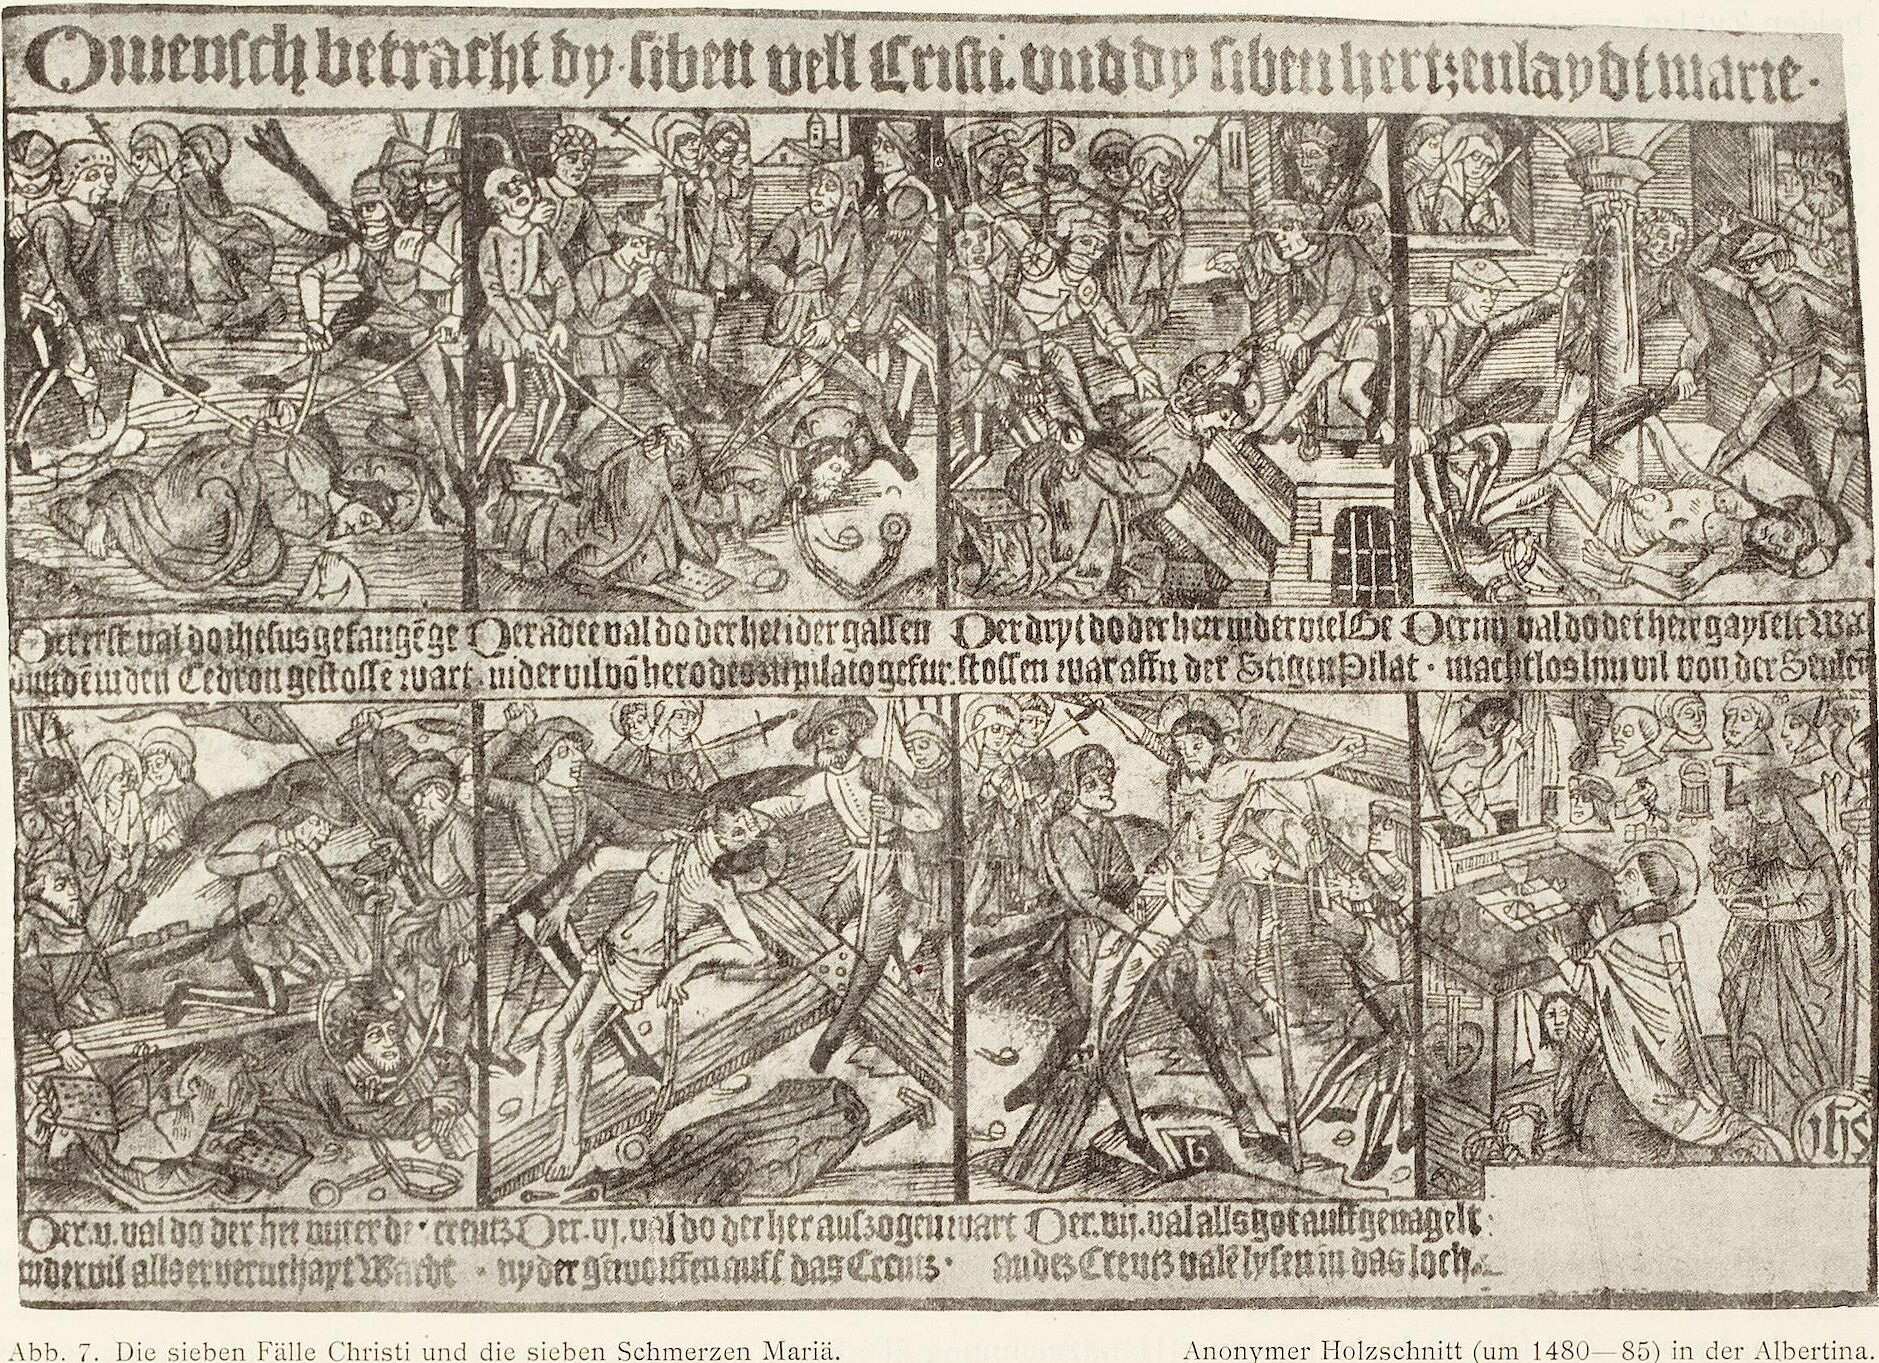 O mensch betracht dy siben vell Cristi. vnd dy siben hertzenlaydt marie.
Der erst val do ihesus gefangē ge
Der ander val do der her i der gassen
Der dryt do der herr nider viel Ge
Der iiij val do der herr gayselt Wa
vnd ē in den Cedron gestosse wart
nider vil vō herodes zu pilato gefur
stossen war affn der Stigen Pilat
machtlos inn vil von der Seulen
Der .v. val do der her vnter de creutz
Der .vj. val do der her auszogen wart
Der .vij. val als got auff genagelt
nider vil als er verurthayt Wacht
nyder geworffen auff das Creutz
an dez Creutz valē lysen in das loch
ihs
Abb. 7. Die sieben Fälle Christi und die sieben Schmerzen Mariä.
Anonymer Holzschnitt (um 1480—85) in der Albertina.